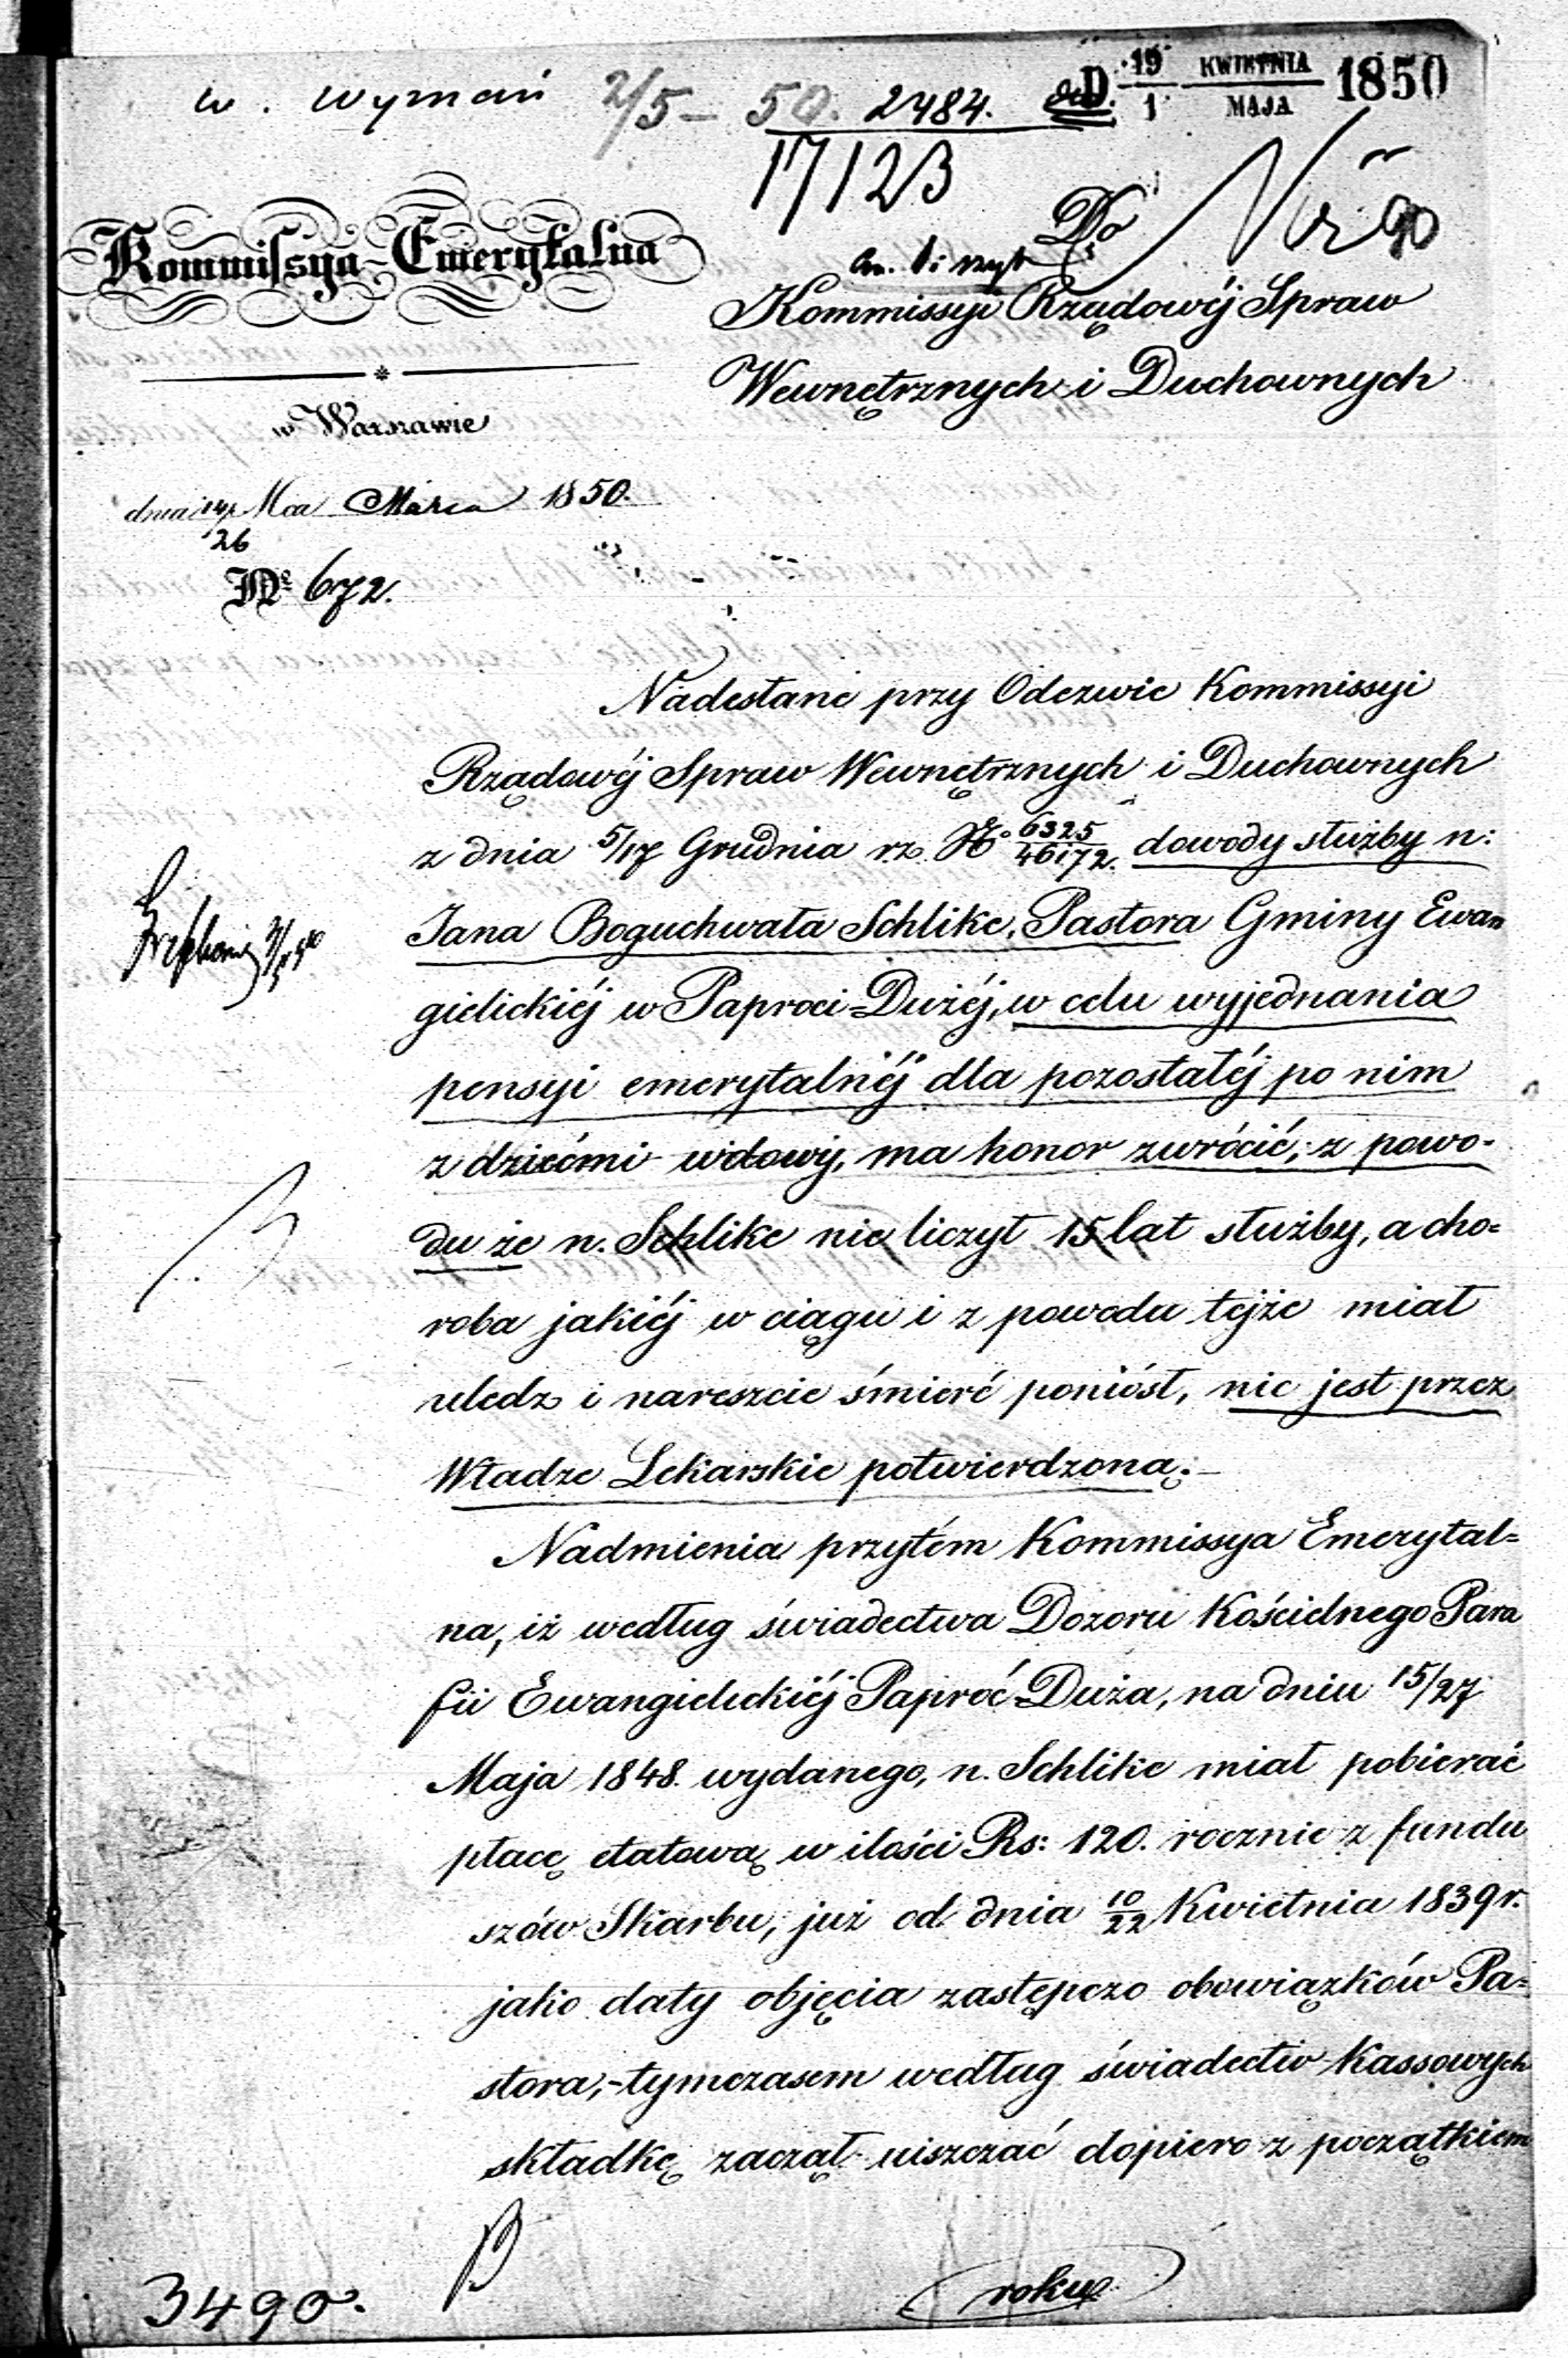 w. Wyznań 2/5 - 50. 2484. D. 19/1 KWIETNIA/MAJA 1850
17123
Do
Kommissya Emerytalna
Kommissyi Rządowéj Spraw
Wewnętrznych i Duchownych
w Warszawie
dnia 14/26 Mca Marca 1850.
No 672.
Nadesłane przy Odezwie Kommissyi
Rządowéj Spraw Wewnętrznych i Duchownych
z dnia 5/17 Grudnia r.z. No 6325/46172. dowody służby n:
Jana Boguchwała Schlike, Pastora Gminy Ewan
gielickiéj w Paproci-Dużéj, w celu wyjednania
pensyi emerytalnéj dla pozostałéj po nim
z dziećmi wdowy, ma honor zwrócić; z powo-
du że n. Schlike nie liczył 15 lat służby, a cho=
roba jakiéj w ciągu i z powodu tejże miał
uledz i nareszcie śmierć poniósł, nie jest przez
Władze Lekarskie potwierdzoną.-
Nadmienia przytém Kommissya Emerytal=
na, iż według świadectwa Dozoru Kościelnego Para
fii Ewangielickiéj Paproć-Duża, na dniu 15/27
Maja 1848. wydanego, n. Schlike miał pobierać
płacę etatową w ilości Rs: 120. rocznie z fundu
szów Skarbu, już od dnia 10/22 Kwietnia 1839 r.
jako daty objęcia zastępczo obowiązków Pa=
stora,-tymczasem według świadectw Kassowych
składkę zaczął uiszczać dopiero z początkiem
roku
3490.